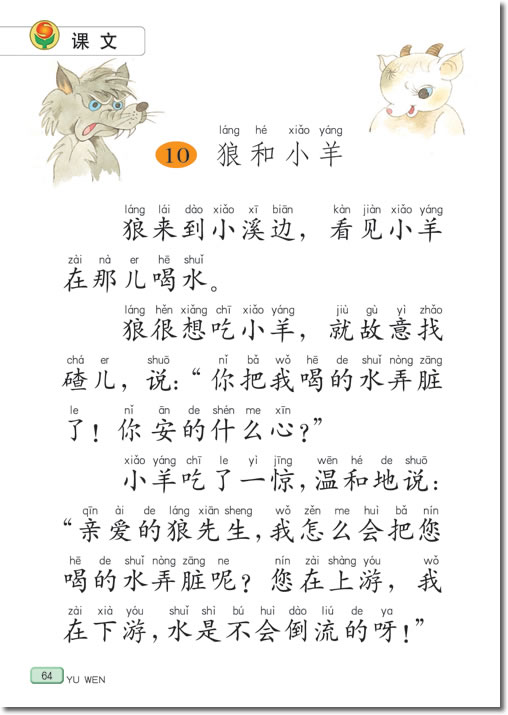 课文
láng hé xiǎo yáng
10 狼和小羊
láng lái dào xiǎo xī biān kàn jiàn xiǎo yáng
狼来到小溪边，看见小羊
zài nà er hē shuǐ
在那儿喝水。
láng hěn xiǎng chī xiǎo yáng jiù gù yì zhǎo
狼很想吃小羊，就故意找
chá er shuō nǐ bǎ wǒ hē de shuǐ nòng zāng
碴儿，说：“你把我喝的水弄脏
le nǐ ān de shén me xīn
了！你安的什么心？”
xiǎo yáng chī le yì jīng wēn hé de shuō
小羊吃了一惊，温和地说：
qīn ài de láng xiān sheng wǒ zěn me huì bǎ nín
“亲爱的狼先生，我怎么会把您
hē de shuǐ nòng zāng ne nín zài shàng yóu wǒ
喝的水弄脏呢？您在上游，我
zài xià yóu shuǐ shì bú huì dào liú de ya
在下游，水是不会倒流的呀！”
64 YU WEN